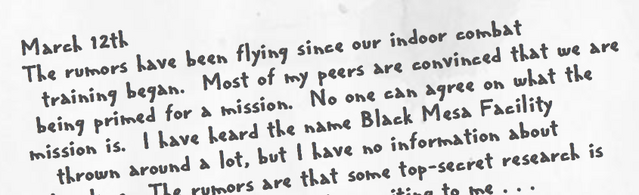 March 12th
The rumors have been flying since our indoor combat
training began. Most of my peers are convinced that we are
being primed for a mission. No one can agree on what the
mission is. I have heard the name Black Mesa Facility
thrown around a lot, but I have no information about
The rumors are that some top-secret research is
to me . . .